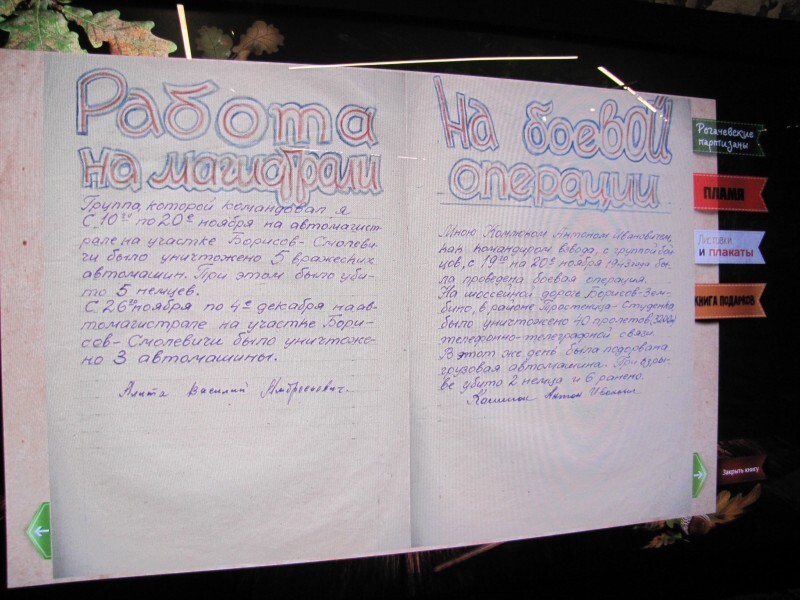 Работа
на магистрали
Группа, которой командовал я
С 10го по 20е ноября на автомагист
рале на участке Борисов-Смолеви-
чи было уничтожено 5 вражеских
автомашин. При этом было уби-
то 5 немцев.
С 26го ноября по 4е декабря на ав-
томагистрале на участке Бори-
сов-Смолевичи было уничтоже-
но 3 автомашины.
Василий
На боевой
операции
Мною Антоном Ивановичем,
как командиром взвода, с группой бой-
цов, с 19го на 20е ноября бы-
ла проведена боевая операция.
На шоссейной дороге Борисов-Зем-
бино, в районе Простеница-Студенка
было уничтожено 40 пролетов,
телефонно-телеграфной связи.
В этот же день была подорвана
грузовая автомашина. При взры-
ве убито 2 немца и 6 ранено.
Антон
Рогачевские
партизаны
ПЛАМЯ
Листовки
и плакаты
КНИГА ПОДАРКОВ
Закрыть книгу